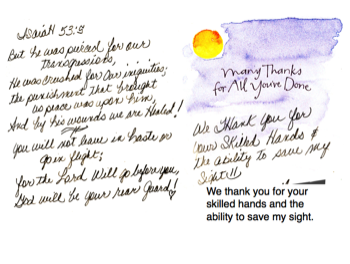 Isaiah 53:5
But he was pierced for our
transgressions,
He was crushed for our iniquities;
the punishment that brought
us peace was upon him,
And by his wounds we are Healed!
You will not leave in haste or
go in flight;
for the Lord Will go before you,
God will be your rear Guard!
Many Thanks
for All You've Done
We Thank You for
your Skilled Hands &
the ability to save my
Sight!!
We thank you for your
skilled hands and the
ability to save my sight.